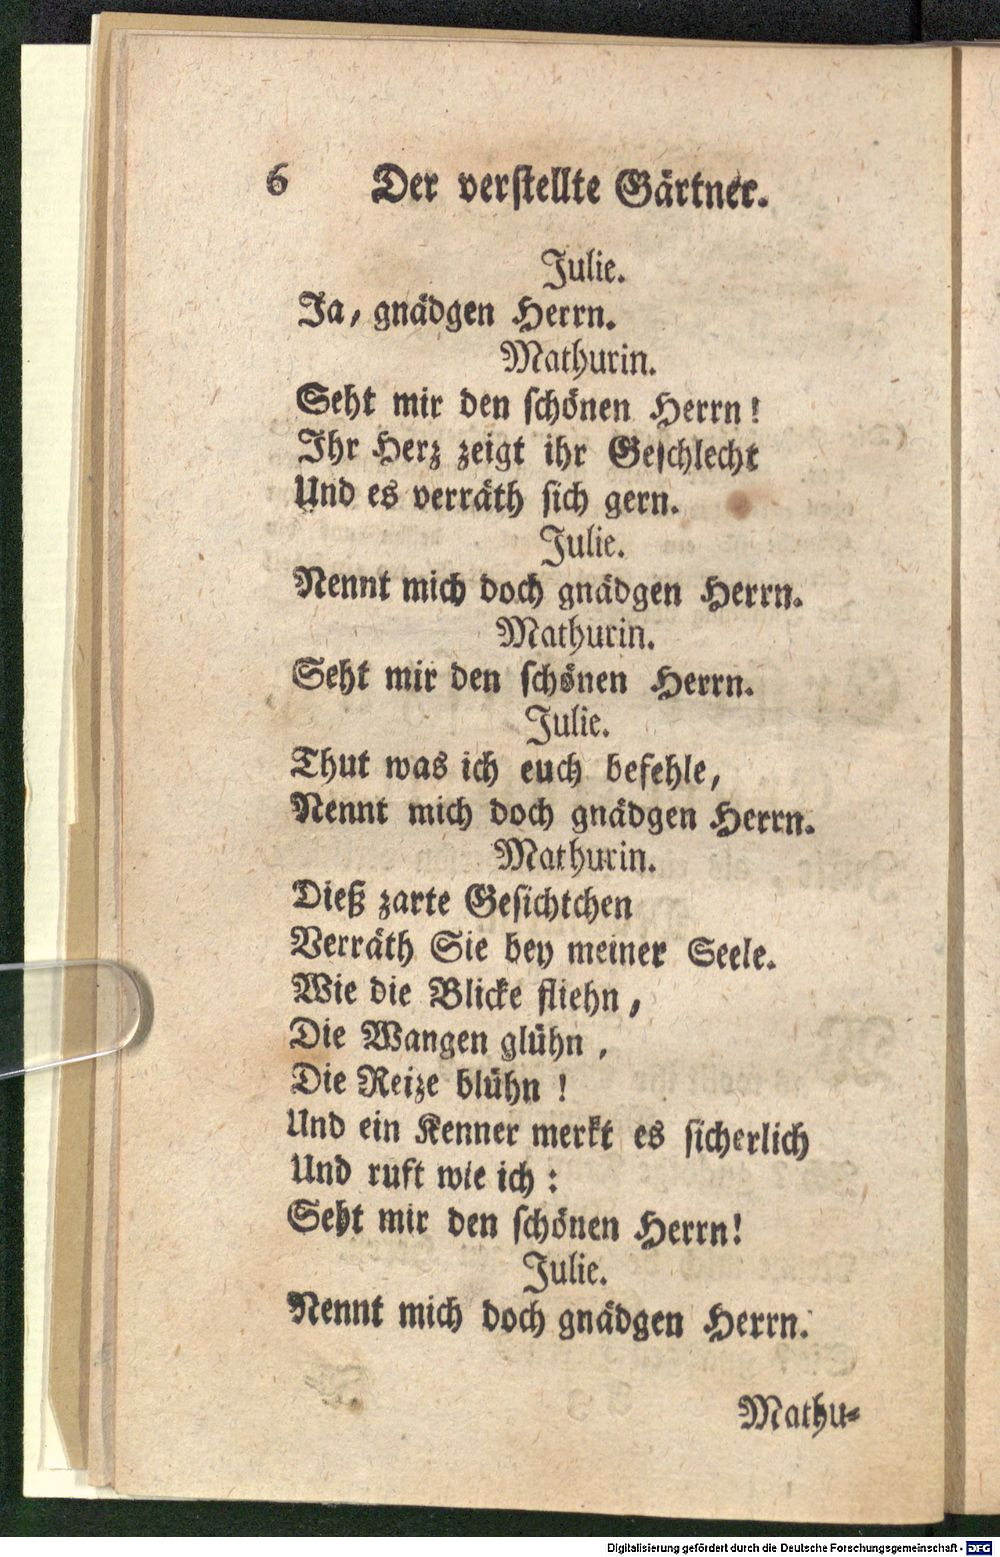 6 Der verstellte Gärtner.
Julie.
Ja, gnädgen Herrn.
Mathurin.
Seht mir den schönen Herrn!
Ihr Herz zeigt ihr Geschlecht
Und es verräth sich gern.
Julie.
Nennt mich doch gnädgen Herrn.
Mathurin.
Seht mir den schönen Herrn.
Julie.
Thut was ich euch befehle,
Nennt mich doch gnädgen Herrn.
Mathurin.
Dieß zarte Gesichtchen
Verräth Sie bey meiner Seele.
Wie die Blicke fliehn,
Die Wangen glühn,
Die Reize blühn!
Und ein Kenner merkt es sicherlich
Und ruft wie ich:
Seht mir den schönen Herrn!
Julie.
Nennt mich doch gnädgen Herrn.
Mathu-
Digitalisierung gefördert durch die Deutsche Forschungsgemeinschaft - DFG